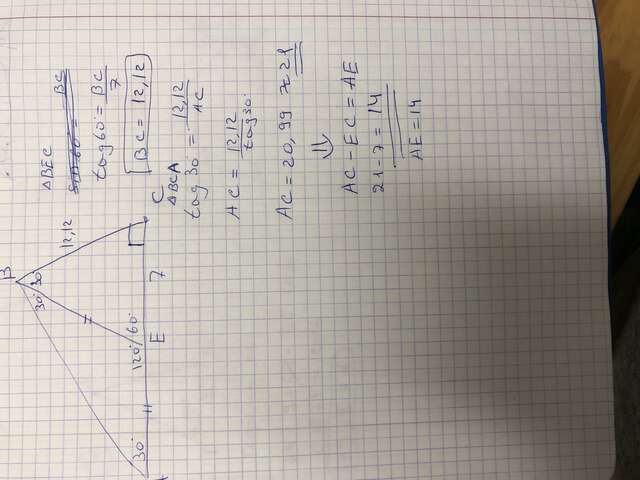 B
30°
30
12,12
30°
120°
60°
E
7
C
△BEC
tag60° = BC/7
BC = 12,12
△BCA
tag30° = 12,12/AC
AC = 12,12/tag30°
AC = 20,99 ≈ 21
⇓
AC - EC = AE
21 - 7 = 14
AE = 14